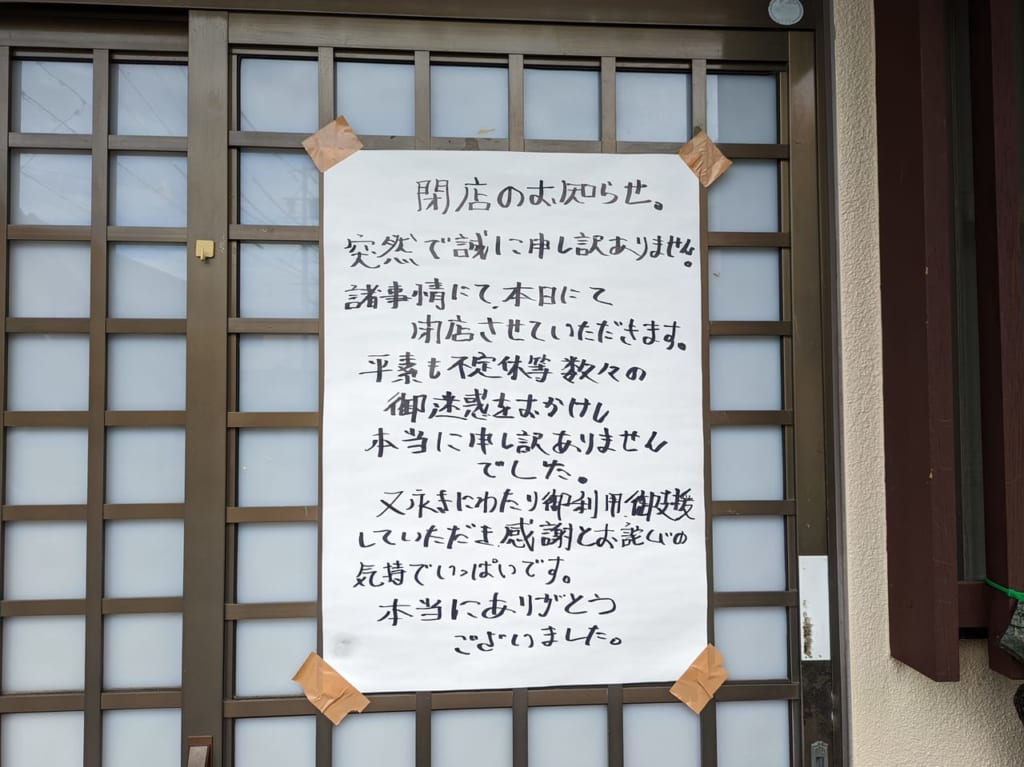 閉店のお知らせ。
突然で誠に申し訳ありません。
諸事情にて、本日にて
閉店させていただきます。
平素も不定休等数々の
御迷惑をおかけし
本当に申し訳ありません
でした。
又永きにわたり御利用御支援
していただき感謝とお詫びの
気持でいっぱいです。
本当にありがとう
ございました。